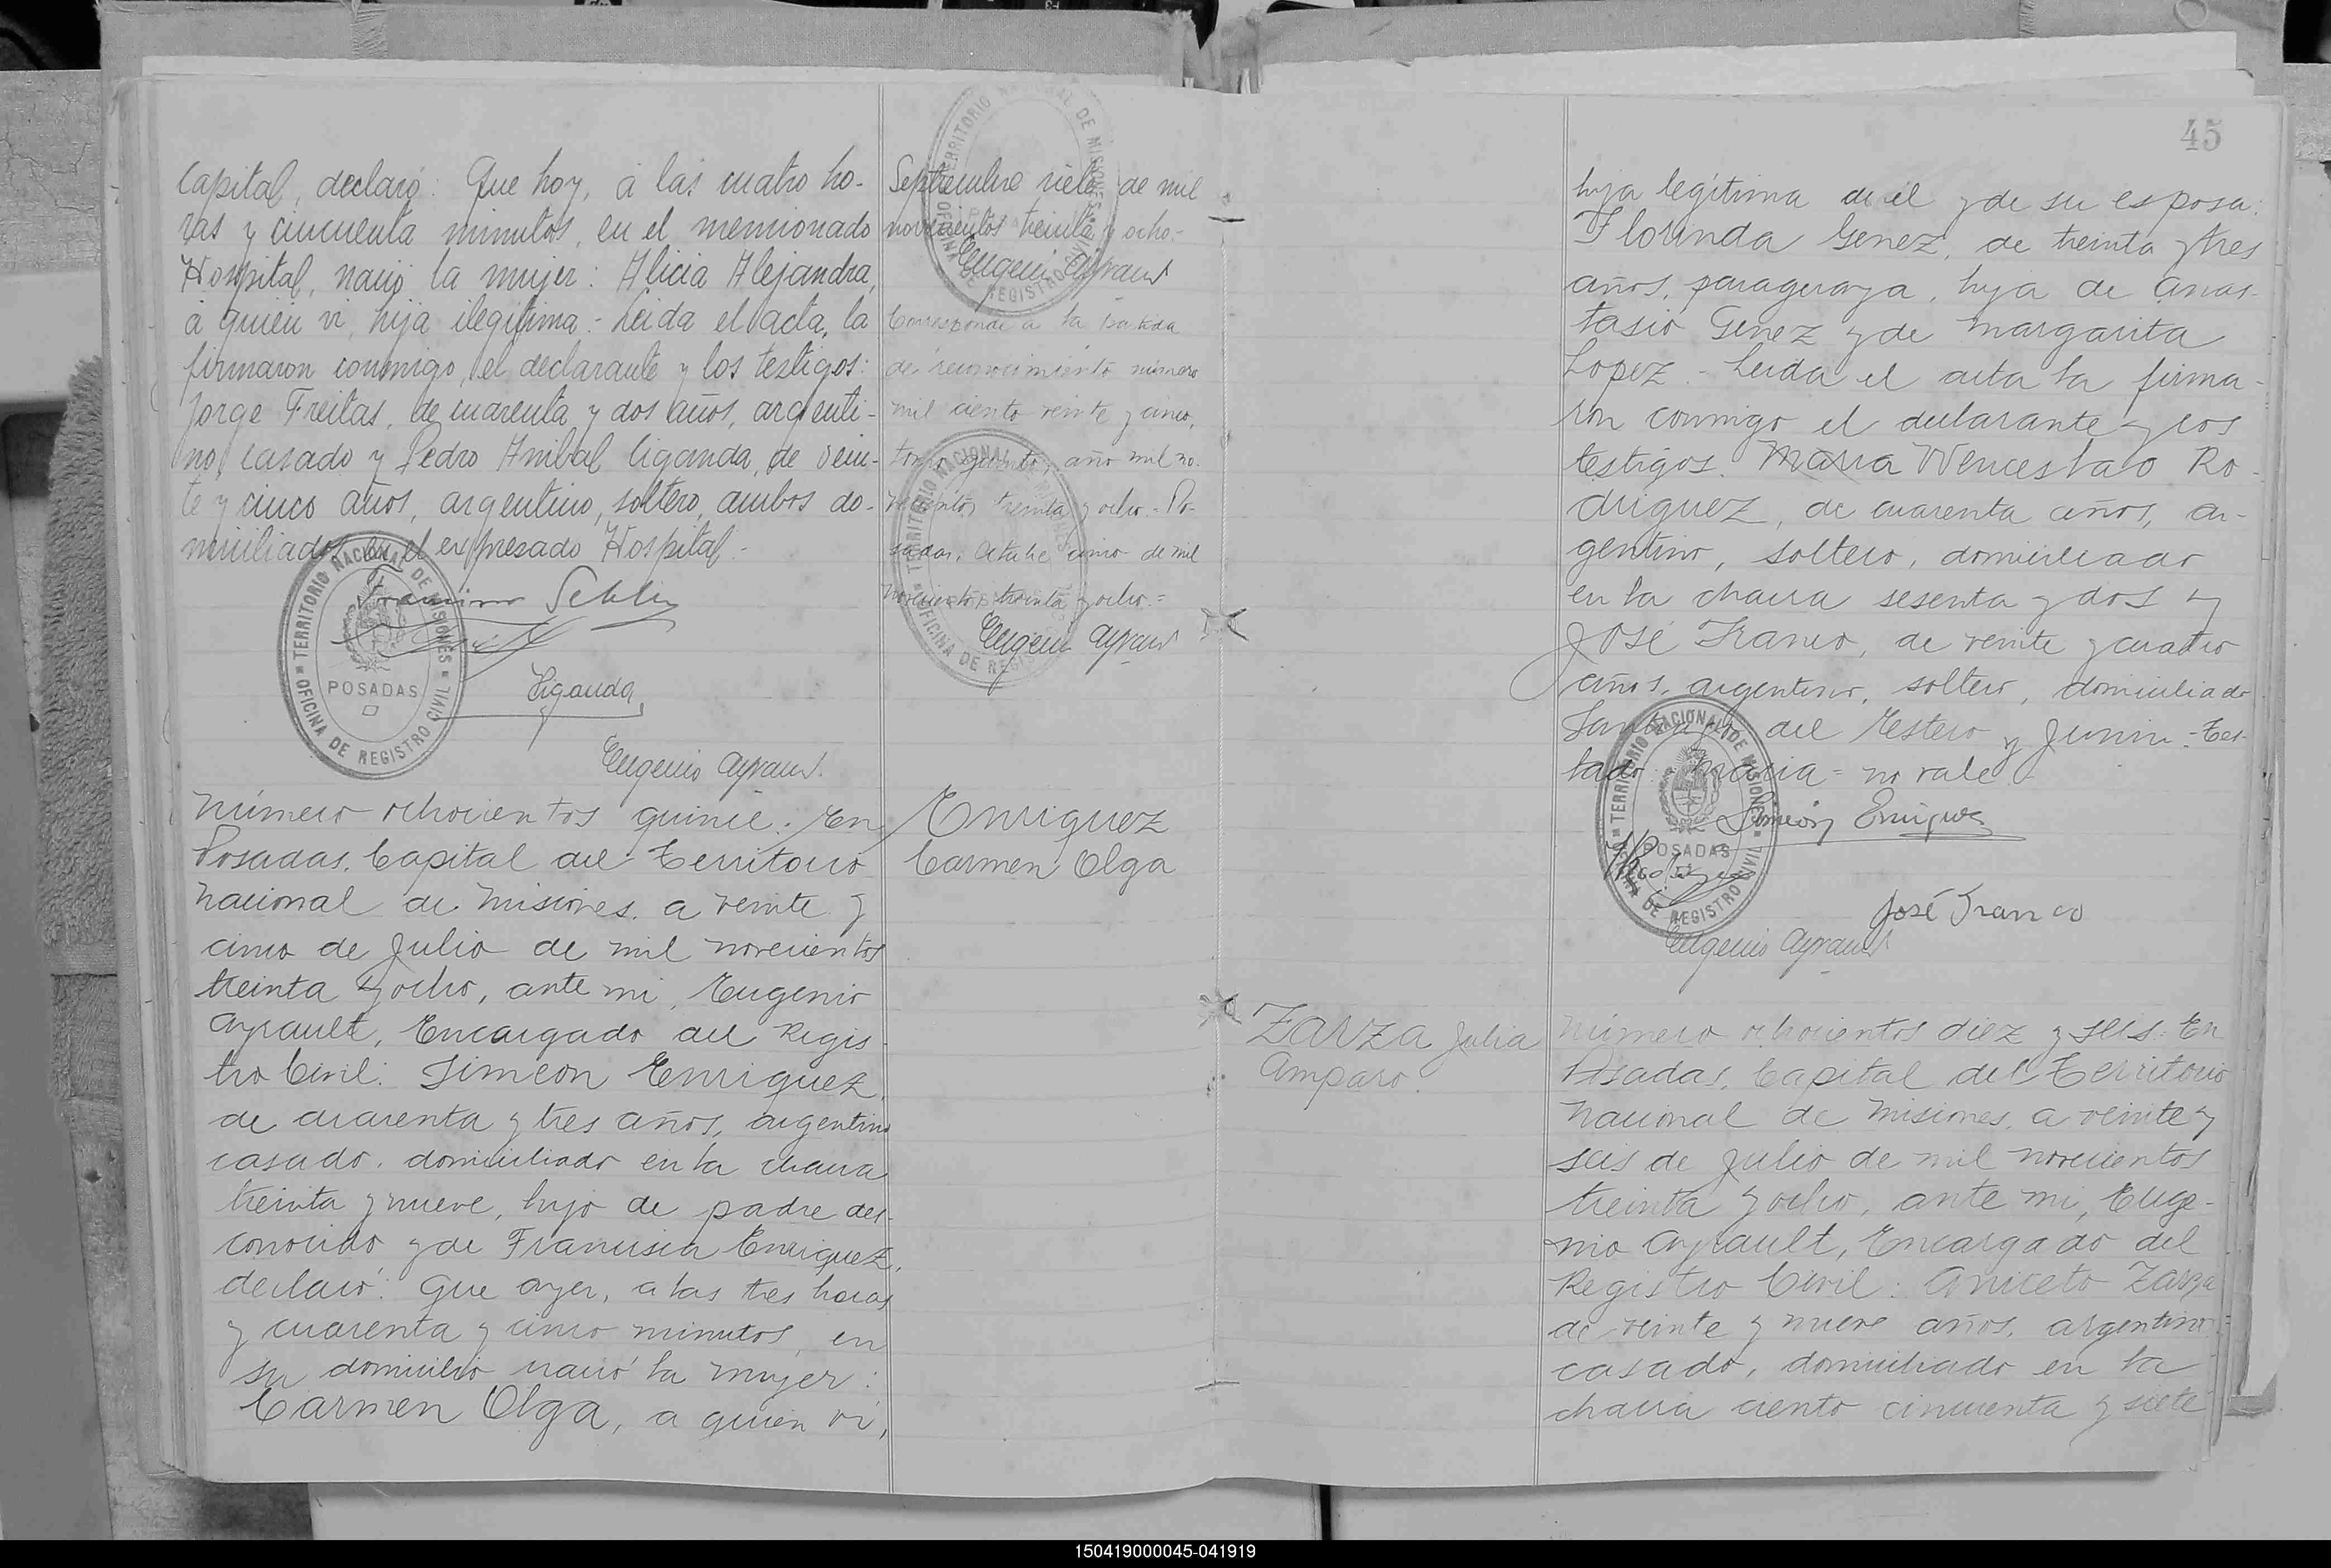 Capital, declaró: Que hoy, á las cuatro ho-
ras y cincuenta minutos, en el mencionado
Hospital, nació la mujer: Alicia Alejandra,
á quien vi, hija ilegítima.- Leída el acta, la
firmaron conmigo, el declarante y los testigos:
Jorge Freitas, de cuarenta y dos años, argenti-
no, casado y Pedro Anibal Liganda, de vein-
te y cinco años, argentino, soltero, ambos do-
miciliados en el expresado Hospital.-
TERRITORIO NACIONAL DE MISIONES
POSADAS
OFICINA DE REGISTRO CIVIL
Liganda
Eugenio Ayrault
Septiembre siete de mil
novecientos treinta y ocho.-
Eugenio Ayrault
TERRITORIO NACIONAL DE MISIONES
OFICINA DE REGISTRO CIVIL
Corresponde a la partida
de reconocimiento número
mil ciento veinte y cinco,
tomo quinto, año mil no-
vecientos treinta y ocho.- Po-
sadas, Octubre cinco de mil
novecientos treinta y ocho.=
Eugenio Ayrault
TERRITORIO NACIONAL DE MISIONES
OFICINA DE REGISTRO CIVIL
Enriquez
Carmen Olga
Número ochocientos quince: En
Posadas, Capital del Territorio
Nacional de Misiones, a veinte y
cinco de Julio de mil novecientos
treinta y ocho, ante mi, Eugenio
Ayrault, Encargado del Regis-
tro Civil: Simeon Enriquez,
de cuarenta y tres años, argentino
casado, domiciliado en la chacra
treinta y nueve, hijo de padre des-
conocido y de Francisca Enriquez,
declaró: Que ayer, a las tres horas
y cuarenta y cinco minutos, en
su domicilio nació la mujer:
Carmen Olga, a quien vi,
45
hija legítima de él y de su esposa:
Florinda Genez, de treinta y tres
años, paraguaya, hija de Anas-
tasio Genez y de Margarita
Lopez.- Leida el acta la firma-
ron conmigo el declarante y los
testigos. Maria Wenceslao Ro-
driguez, de cuarenta años, ar-
gentino, soltero, domiciliado
en la chacra sesenta y dos y
José Franco, de veinte y cuatro
años, argentino, soltero, domiciliado
Santiago del Estero y Junin.- Tes-
tado: Maria = no vale.-
Simeón Enriquez
TERRITORIO NACIONAL DE MISIONES
POSADAS
OFICINA DE REGISTRO CIVIL
José Franco
Eugenio Ayrault
Zarza Julia
Amparo.
Número ochocientos diez y seis: En
Posadas, Capital del Territorio
Nacional de Misiones, a veinte y
seis de Julio de mil novecientos
treinta y ocho, ante mi, Euge-
nio Ayrault, Encargado del
Registro Civil: Aniceto Zarza
de veinte y nueve años, argentino
casado, domiciliado en la
chacra ciento cincuenta y siete
150419000045-041919